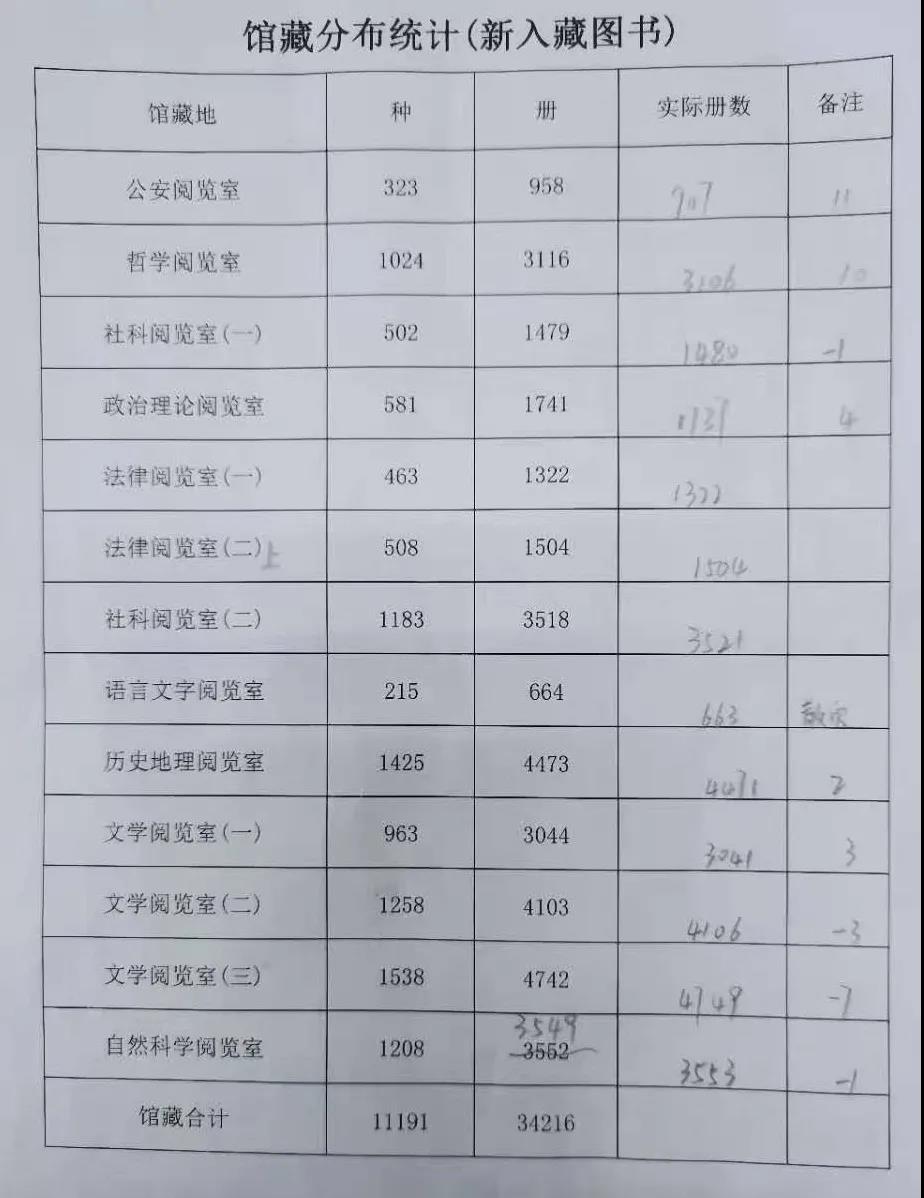 馆藏分布统计(新入藏图书)
馆藏地 种 册 实际册数 备注
公安阅览室 323 958 907 11
哲学阅览室 1024 3116 3106 10
社科阅览室(一) 502 1479 1480 -1
政治理论阅览室 581 1741 1737 4
法律阅览室(一) 463 1322 1322
法律阅览室(二)上 508 1504 1504
社科阅览室(二) 1183 3518 3521
语言文字阅览室 215 664 663
历史地理阅览室 1425 4473 4471 2
文学阅览室(一) 963 3044 3041 3
文学阅览室(二) 1258 4103 4106 -3
文学阅览室(三) 1538 4742 4749 -7
3549
自然科学阅览室 1208 3552 3553 -1
馆藏合计 11191 34216